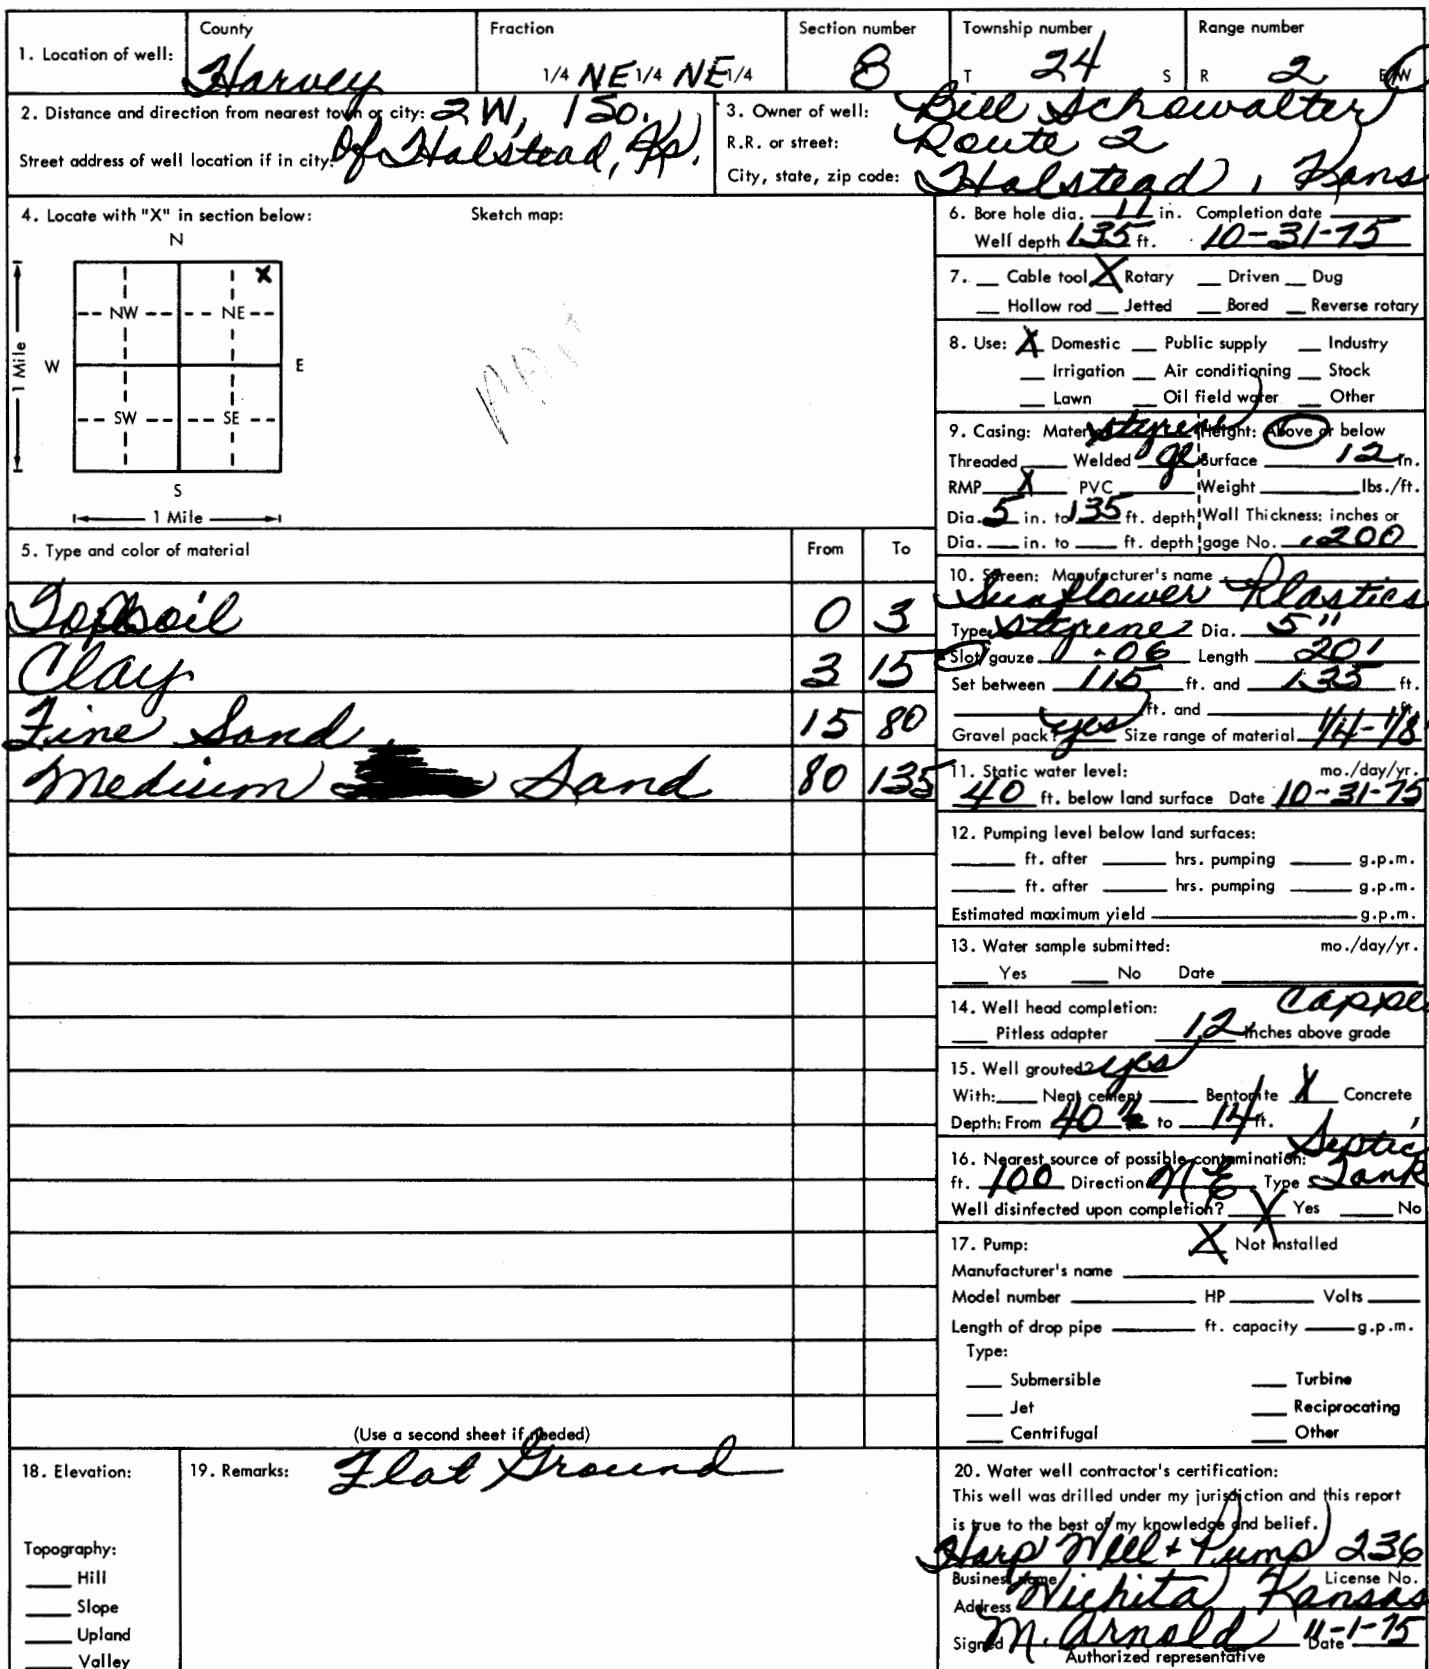 1. Location of well: County Harvey Fraction 1/4 NE 1/4 NE 1/4 Section number 8 Township number T 24 S Range number R 2 E/W
2. Distance and direction from nearest town or city: 2W, 1 So.
Street address of well location if in city: Of Halstead, Ks.
3. Owner of well: Bill Schowalter
R.R. or street: Route 2
City, state, zip code: Halstead, Kans
4. Locate with "X" in section below: Sketch map:
N
X
NW NE
W E
1 Mile
SW SE
S
1 Mile
6. Bore hole dia. 11 in. Completion date
Well depth 135 ft. 10-31-75
7. Cable tool X Rotary Driven Dug
Hollow rod Jetted Bored Reverse rotary
8. Use: X Domestic Public supply Industry
Irrigation Air conditioning Stock
Lawn Oil field water Other
9. Casing: Material styrene Height: Above or below
Threaded Welded Surface 12 in.
RMP X PVC Weight lbs./ft.
Dia. 5 in. to 135 ft. depth Wall Thickness: inches or
Dia. in. to ft. depth gage No. .200
5. Type and color of material From To
Topsoil 0 3
Clay 3 15
Fine Sand 15 80
Medium Sand 80 135
10. Screen: Manufacturer's name
Sunflower Plastics
Type Styrene Dia. 5"
Slot/gauze .06 Length 20'
Set between 115 ft. and 135 ft.
ft. and ft.
Gravel pack? yes Size range of material 1/4-1/8
11. Static water level: mo./day/yr.
40 ft. below land surface Date 10-31-75
12. Pumping level below land surfaces:
ft. after hrs. pumping g.p.m.
ft. after hrs. pumping g.p.m.
Estimated maximum yield g.p.m.
13. Water sample submitted: mo./day/yr.
Yes No Date
14. Well head completion: Cappe
Pitless adapter 12 Inches above grade
15. Well grouted? yes
With: Neat cement Bentonite X Concrete
Depth: From 40" to 14 ft.
16. Nearest source of possible contamination: Septic
ft. 100 Direction NE Type Tank
Well disinfected upon completion? X Yes No
17. Pump: X Not installed
Manufacturer's name
Model number HP Volts
Length of drop pipe ft. capacity g.p.m.
Type:
Submersible Turbine
Jet Reciprocating
Centrifugal Other
(Use a second sheet if needed)
18. Elevation:
Topography:
Hill
Slope
Upland
Valley
19. Remarks: Flat Ground
20. Water well contractor's certification:
This well was drilled under my jurisdiction and this report
is true to the best of my knowledge and belief.
Harp Well + Pump 236
Business name License No.
Address Wichita, Kansas
Signed M. Arnold Date 11-1-75
Authorized representative